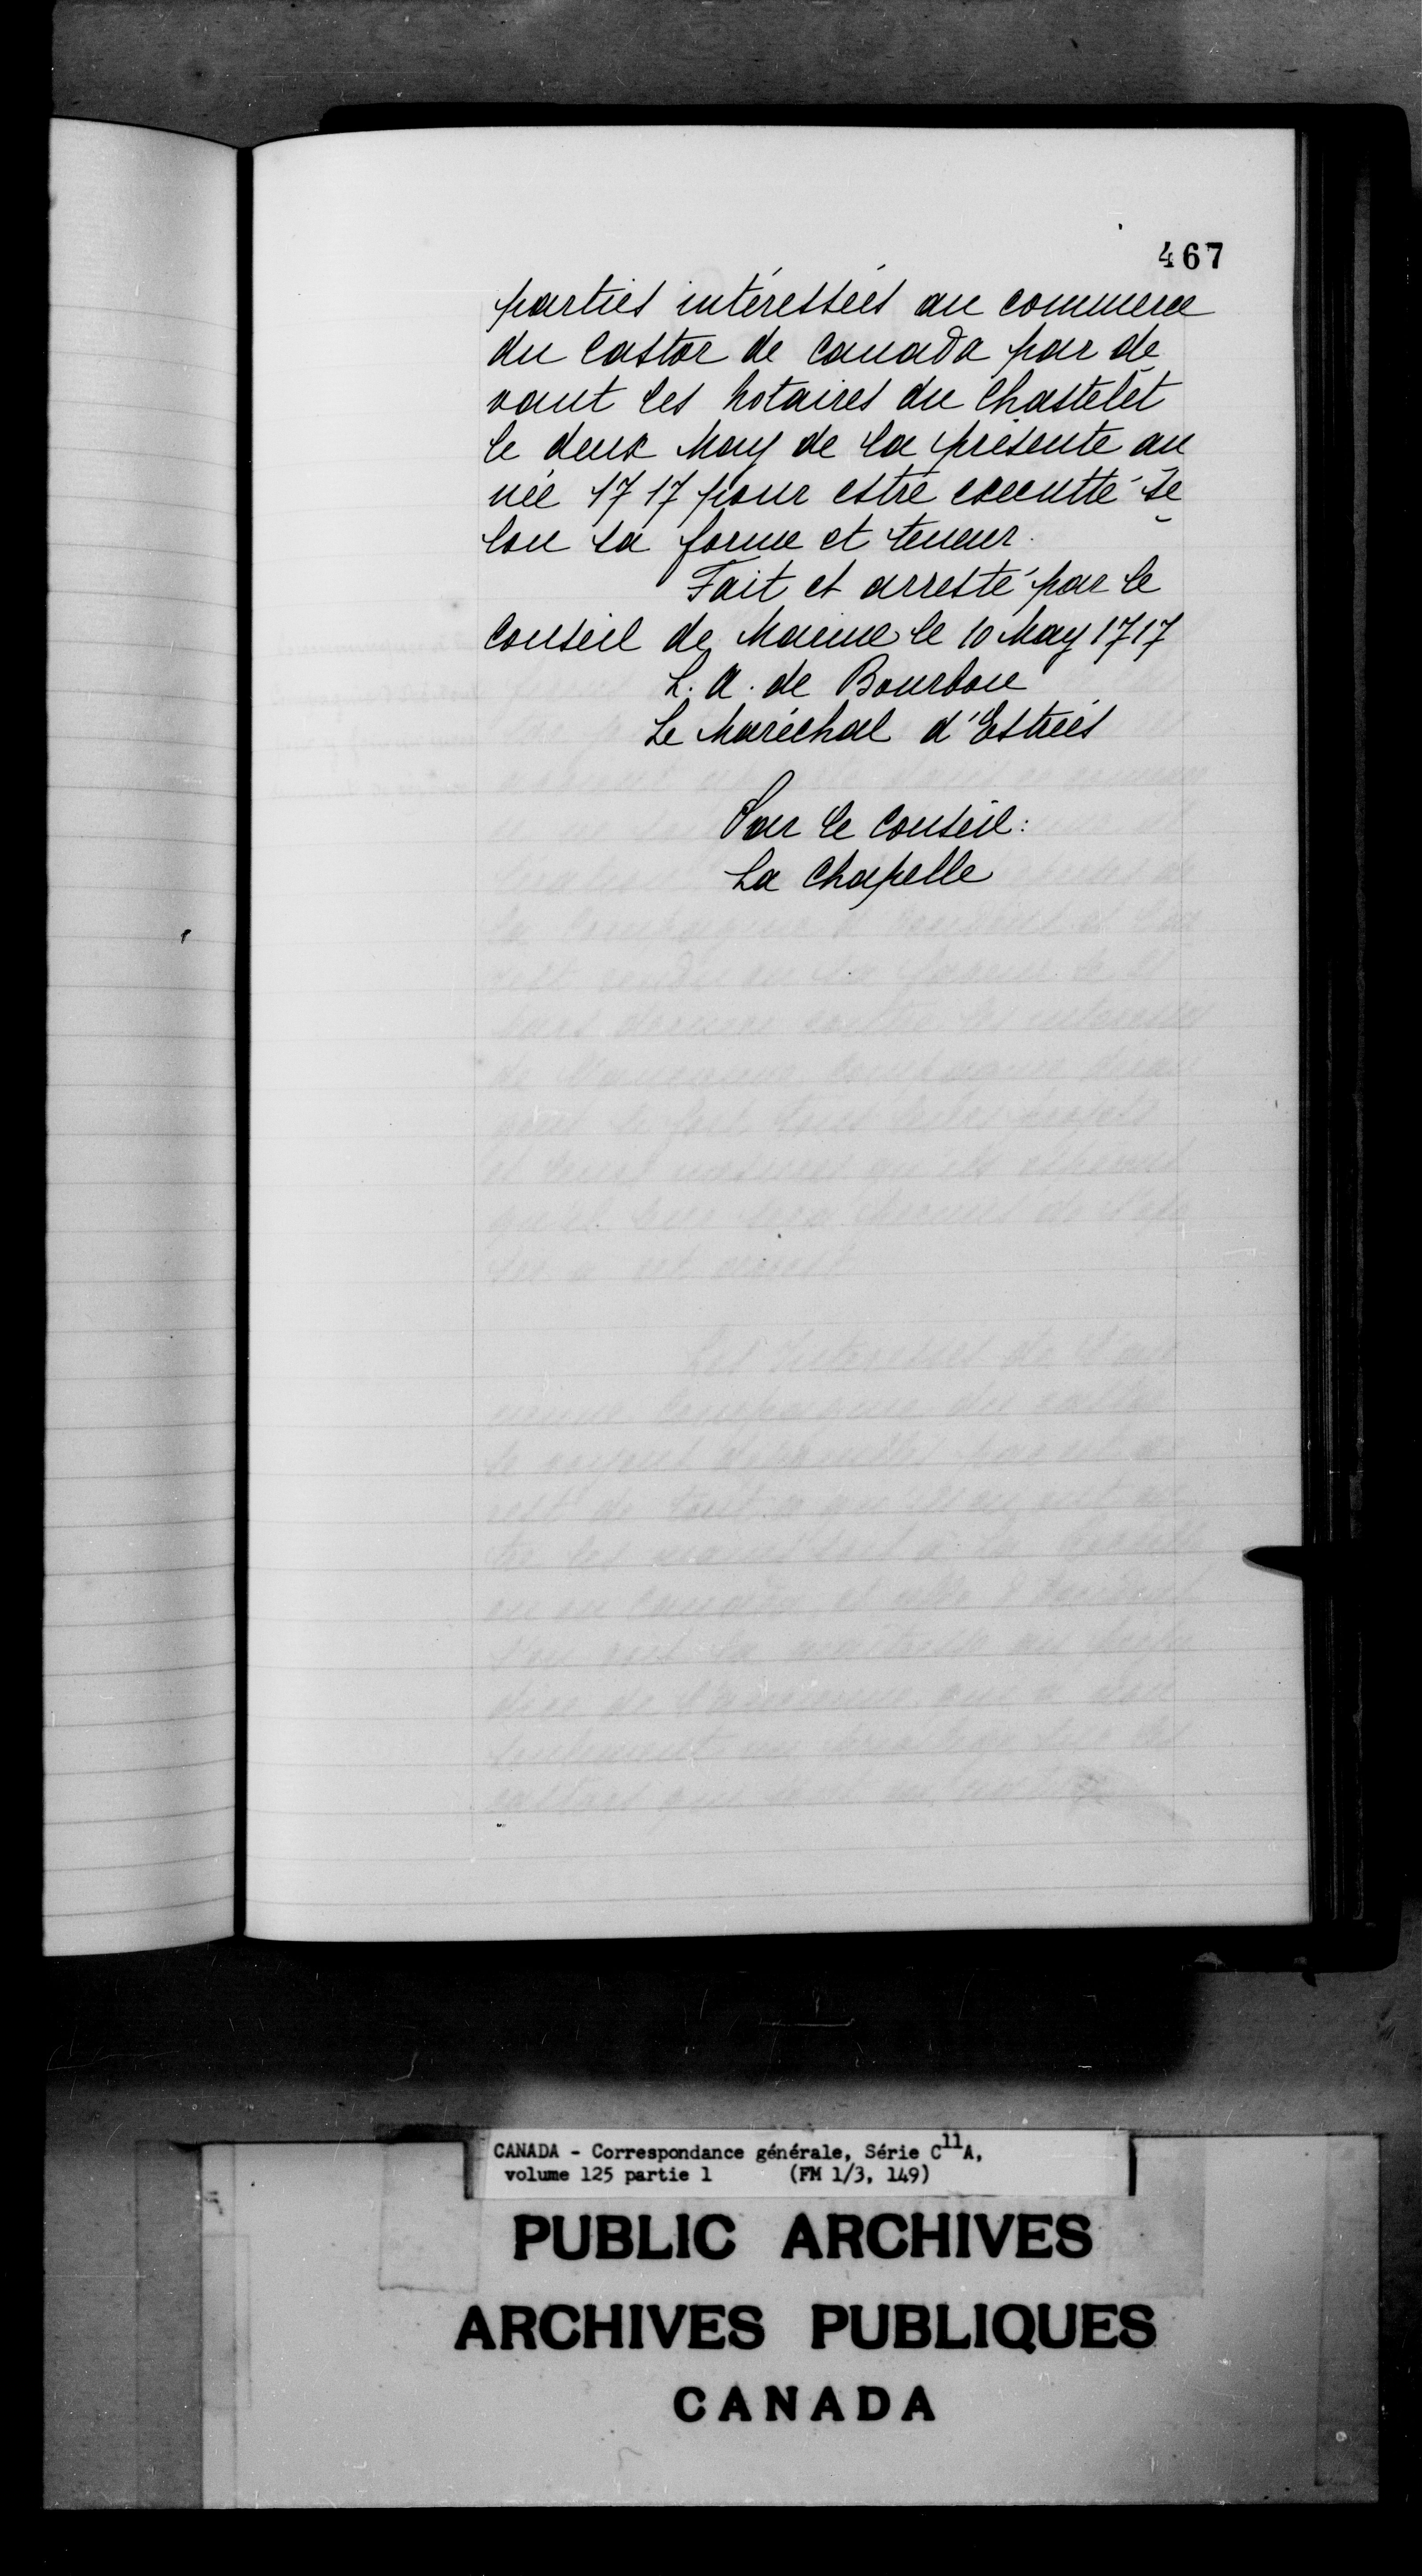 467
parties intéressées au commerce
du Castor de Canada par de
vant les Notaires du Chastelet
le deux May de la présente an
née 1717 pour estre executté se
lon sa forme et teneur.
Fait et arresté par le
Conseil de Marine le 10 May 1717
L. A. de Bourbon
Le Maréchal d'Estrées
Par le Conseil:
La Chapelle
CANADA - Correspondance générale, Série C11A,
volume 125 partie 1 (FM 1/3, 149)
PUBLIC ARCHIVES
ARCHIVES PUBLIQUES
CANADA